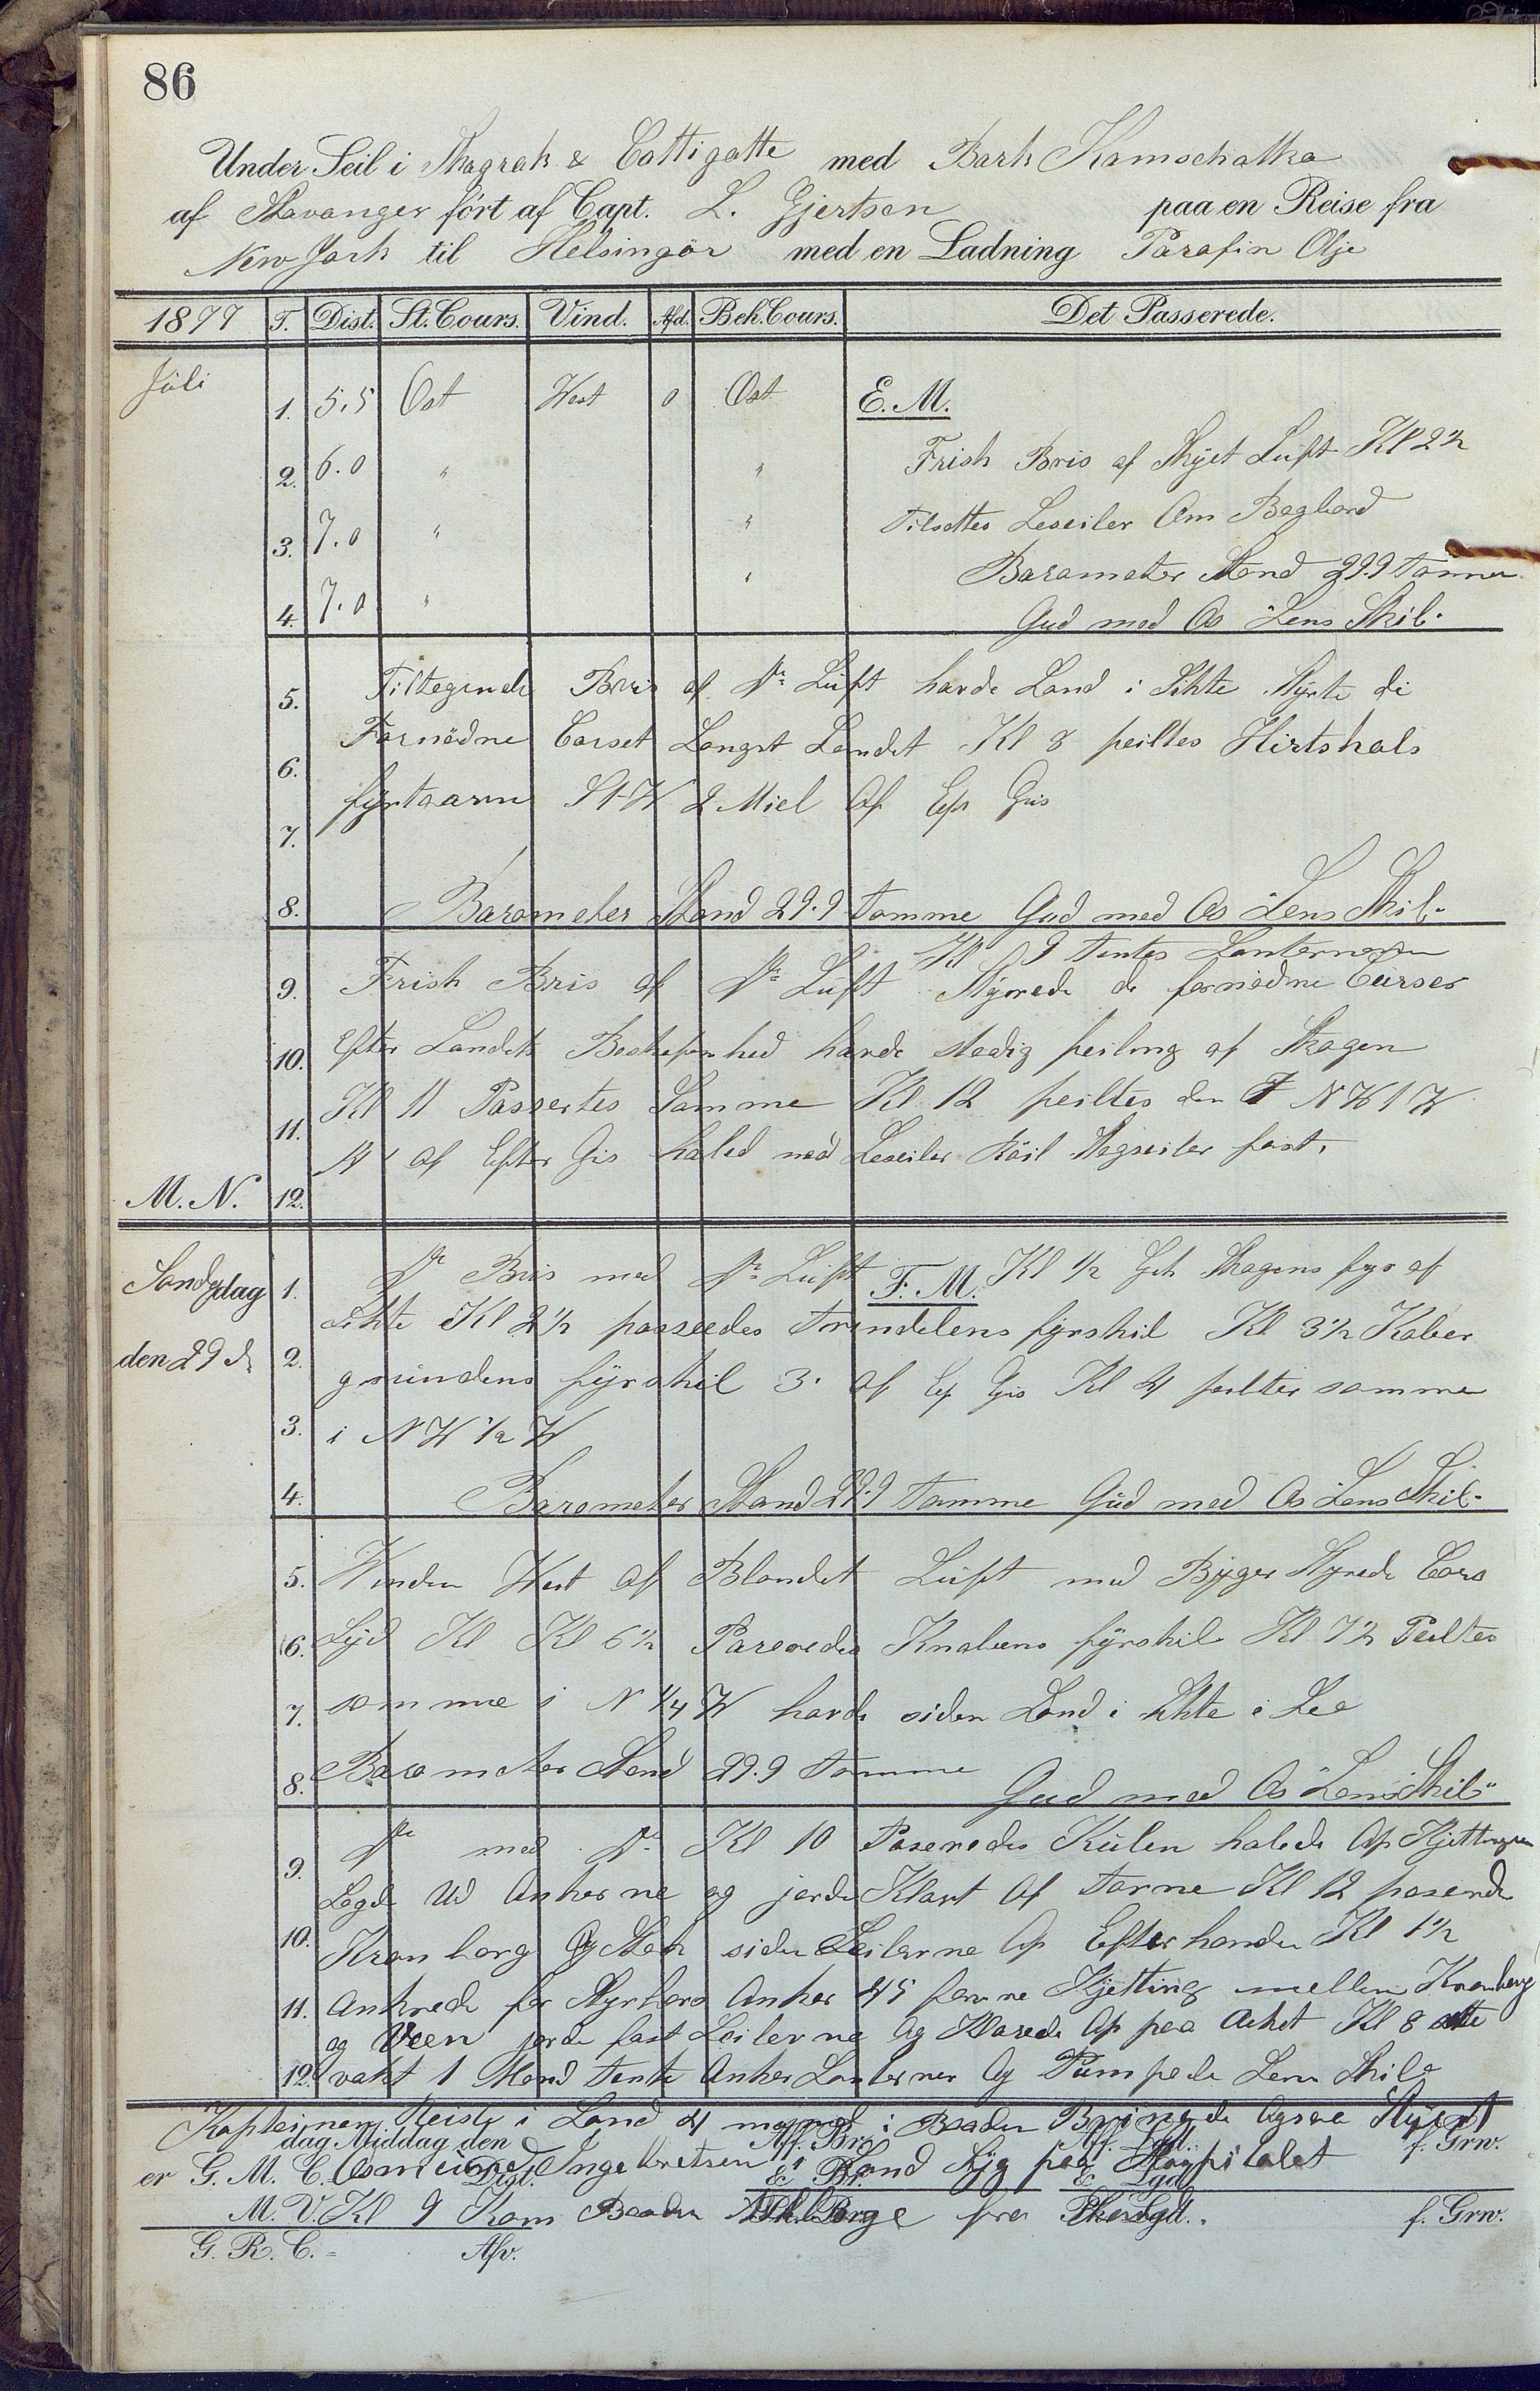 86
Under Seil i Skagrak & Cattigatte med Bark Kamschatka
af Stavanger fört af Capt. L. Gjertsen paa en Reise fra
New York til Helsingör med en Ladning Parafin Olje
1877 T. Dist. St. Cours. Vind. Afd. Beh. Cours. Det Passerede.
Juli 1. 5.5 Ost West 0 Ost E. M.
2. 6.0 " " Frisk Bris af Skyet Luft Kl 2½
3. 7.0 " " Tilsettes Leseiler Om Bagbord
4. 7.0 " " Barometer Stand 29.9 Tomme
Gud med Os Lens Skib.
5. Tiltagende Bris af Do Luft havde Land i Sikte Styrte de
6. Fornödne Corset Langst Landet Kl 8 peiltes Hirtshals
7. fyrtaarn St W 2 Miel Af Eft Gis
8. Barometer Stand 29.9 Tomme Gud med Os Lens Skib.
Kl 9 Tentes Lanternerne
9. Frisk Bris af Do Luft Styrede de fornödne Curser
10. Efter Landets Beskafenhed havde stadig peiling af Skagen
11. Kl 11 Passertes Samme Kl 12 peiltes den I N W 1 W
M. N. 12. af Efter Gis haled ned Leseiler Röil Stagseiler fast.
Sondgdag 1. Do Bris med Do Luft F. M. Kl ½ Gik Skagens fyr af
den 29 de 2. Sikte Kl 2½ passeedes Trindelens fyrskib Kl 3½ Kaber
grundens fyrskib 3' af Ef Gis Kl 4 peiltes samme
3. i N W ½ W
4. Barometer Stand 29.9 Tomme Gud med Os Lens Skib.
5. Vinden West af Blandet Luft med Byger Styrede Cors
6. Syd Kl Kl 6½ Paseredes Knobens fyrskib Kl 7½ Peiltes
7. somme i N ¼ W havde siden Land i Sikte i Lee
8. Barometer Stand 29.9 Tomme Gud med Os Lens Skib"
9. Do med Do Kl 10 Paseredes Kulen halede Op Kjettingen
Lagde Ud Ankerne og jorde Klart Af Torne Kl 12 paserede
10. Kronborg Og Stak siden Seilerne Op Efterhanden Kl 1½
11. Ankrede for Styrbors Anker 45 favne Kjetting mellem Kronborg
og Veen jorde fast Seilerne Og Klarede Op paa Deket Kl 8 satte
12. vakt 1 Mand Tente Anker Lanterner Og Pumpede Lens Skib
Kapteinen Reiste i Land 4 mand i Baaden Bringede Ogsaa Styert
dag Middag den Aff. Br. Aff. Lgd. f. Grw.
er G. M. C. Ingebretsen i Land Syg paa Hospitalet
Dist. & Br. & Lgd.
M. V. Kl 9 Kom Baaden fra
Pk. Br. Pk. Lgd. f. Grw.
G. R. C. = Afv.